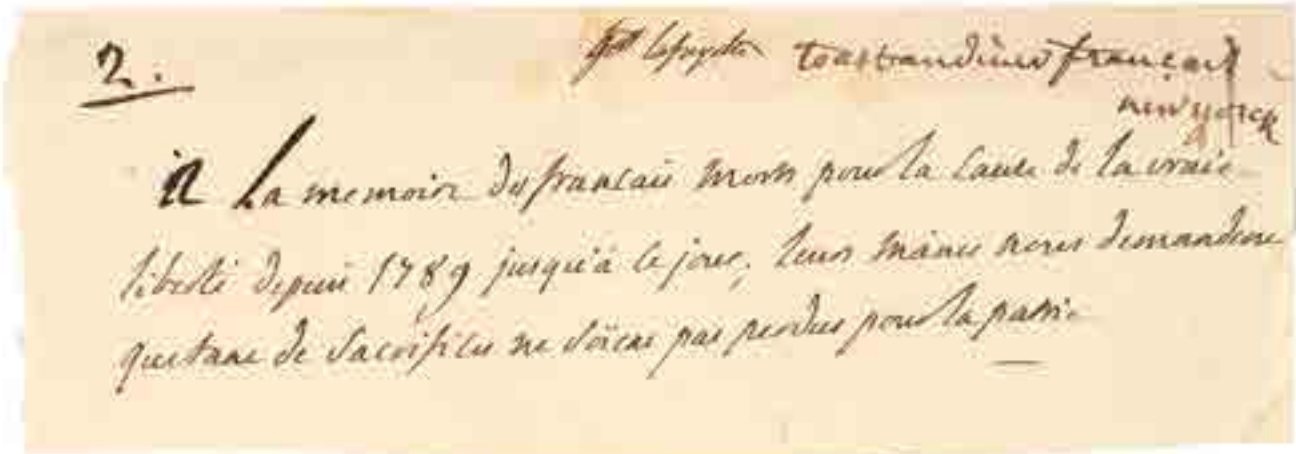 2.
Gal Lafayette toast au diner français
new yorck
A La memoire des francais morts pour la cause de la vraie
liberté depuis 1789 jusqu'à ce jour, leurs mânes nous demandent
que tant de Sacrifices ne soient pas perdus pour la patrie